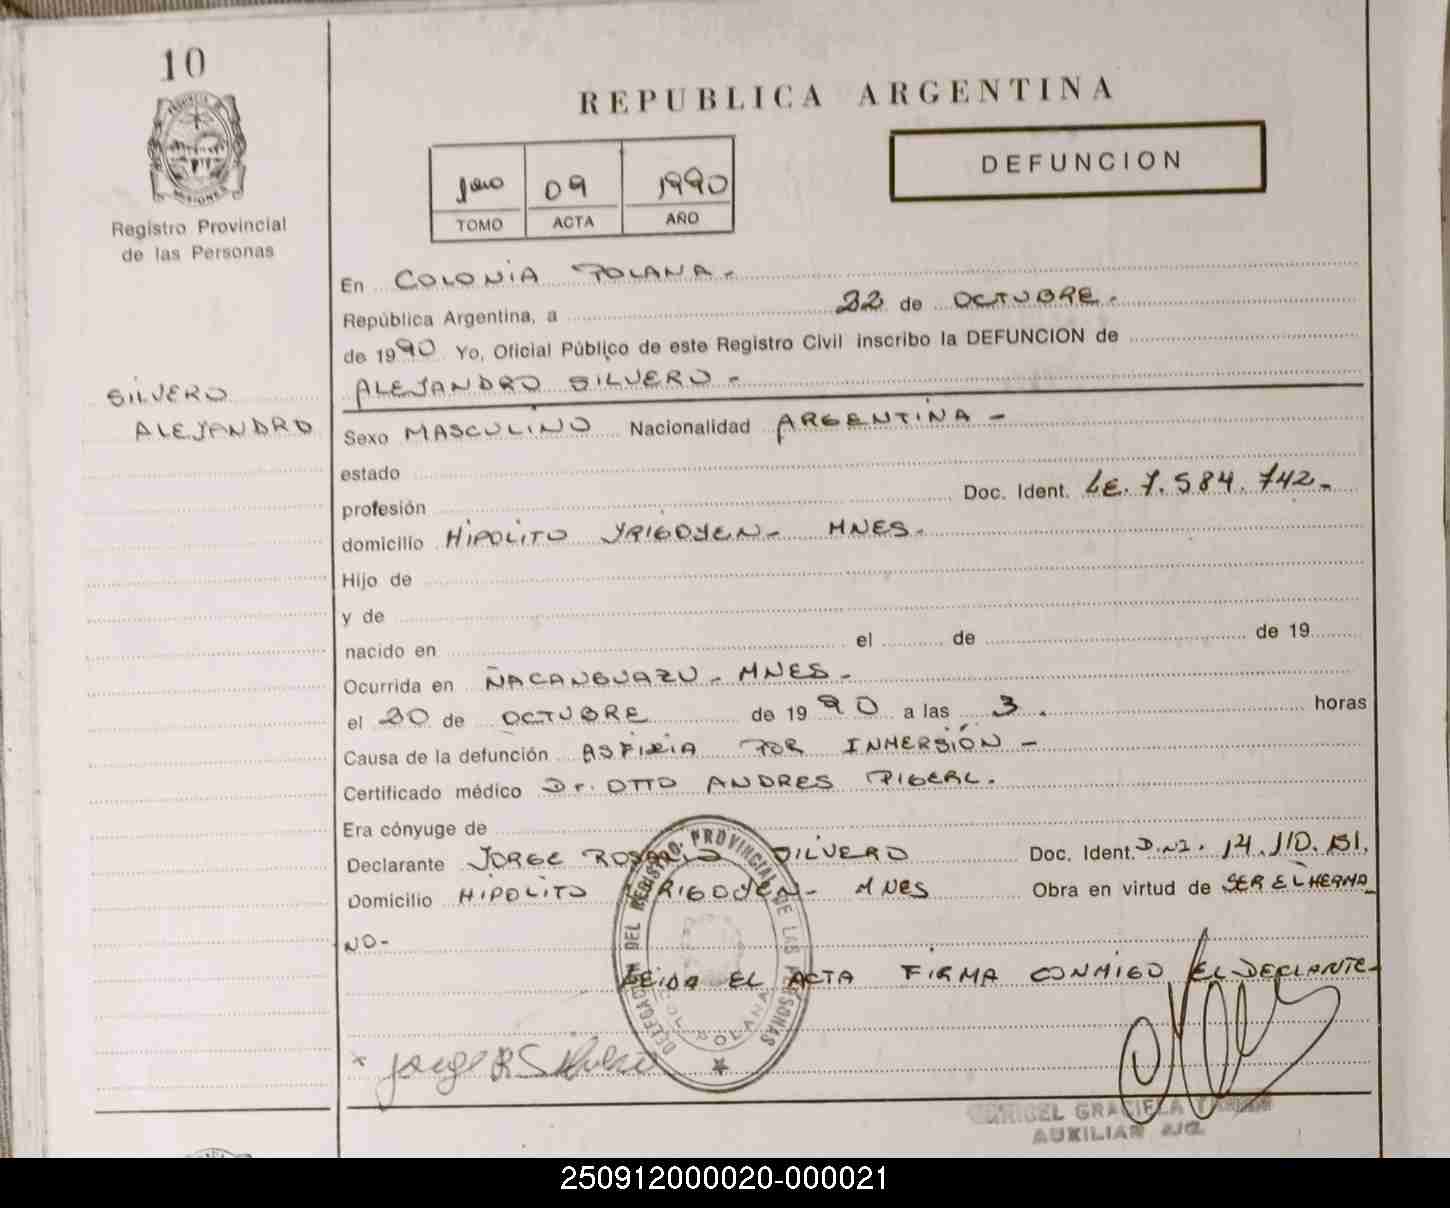 10
REPUBLICA ARGENTINA
DEFUNCION
09 1990
TOMO ACTA AÑO
Registro Provincial
de las Personas
En COLONIA POLANA -
República Argentina, a 22 de OCTUBRE.
de 1990 Yo, Oficial Público de este Registro Civil inscribo la DEFUNCION de
ALEJANDRO SILVERO -
SILVERO
ALEJANDRO
Sexo MASCULINO Nacionalidad ARGENTINA -
estado
profesión Doc. Ident. LE. 7.584.742-
domicilio HIPOLITO YRIGOYEN - MNES.
Hijo de
y de
nacido en el de de 19
Ocurrida en ÑACANGUAZU - MNES -
el 20 de OCTUBRE de 1990 a las 3. horas
Causa de la defunción ASFIXIA POR INMERSIÓN -
Certificado médico Dr. OTTO ANDRES PIGERL.
Era cónyuge de
Declarante JORGE ROSARIO SILVERO Doc. Ident. D.NI. 14.110.151.
Domicilio HIPOLITO YRIGOYEN - MNES Obra en virtud de SER EL HERMA
NO-
LEIDA EL ACTA FIRMA CONMIGO EL DECLANTE-
DELEGACION DEL REGISTRO PROVINCIAL DE LAS PERSONAS
COL. POLANA
Jorge R Silvero
GRACIELA
AUXILIAR
250912000020-000021